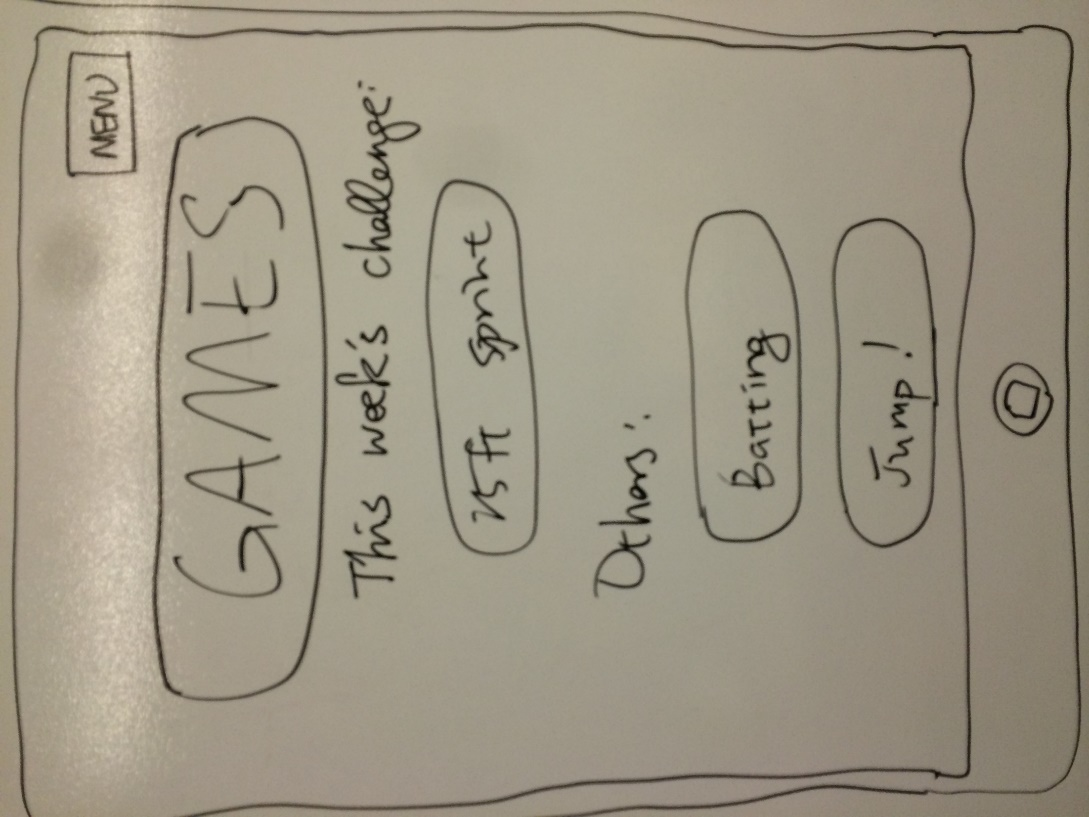 MENU
GAMES
This week's challenge:
25ft sprint
Others:
Batting
Jump!